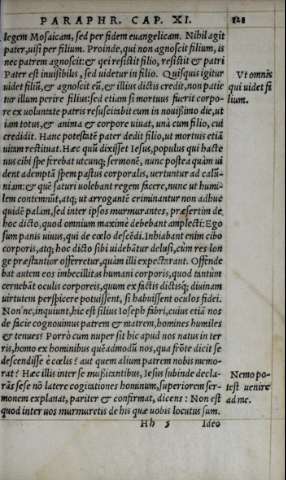 PARAPHR. CAP. XI.
legem Mosaicam, sed per fidem euangelicam. Nihil agit
pater, nisi per filium. Proinde, qui non agnoscit filium, is
nec patrem agnoscit: & qui resistit filio, resistit & patri
Pater est inuisibilis, sed uidetur in filio. Quisquis igitur
Vt omnis
uidet filiũ, & agnoscit eũ, & illius dictis credit, non patie
qui uidet fi
tur illum perire filius: sed etiam si mortuus fuerit corpo-
lium.
re ex uoluntate patris resuscitabit eum in nouissimo die, ut
iam totus, & anima & corpore uiuat, unà cum filio, cui
credidit. Hanc potestatẽ pater dedit filio, ut mortuis etiã
uitam restituat. Hæc quũ dixisset Iesus, populus qui hacte
nus cibi spe ferebat utcunq; sermonẽ, nunc postea quàm ui
dent ademptã spem pastus corporalis, uertuntur ad calũ-
niam: & quẽ saturi uolebant regem facere, nunc ut humi-
lem contemnũt, atq; ut arrogantẽ criminantur non adhuc
quidẽ palam, sed inter ipsos murmurantes, præsertim de
hoc dicto, quod omnium maximè debebant amplecti: Ego
sum panis uiuus, qui de cœlo descẽdi. Inhiabant enim cibo
corporis, atq; hoc dicto sibi uidebãtur delusi, cùm res lon
ge præstantior offerretur, quàm illi expectarant. Offende
bat autem eos imbecillitas humani corporis, quod tantùm
cernebãt oculis corporeis, quum ex factis dictisq; diuinam
uirtutem perspicere potuissent, si habuissent oculos fidei.
Non'ne, inquiunt, hic est filius Ioseph fabri, cuius etiã nos
de facie cognouimus patrem & matrem, homines humiles
& tenues? Porrò cum nuper sit hic apud nos natus in ter
ris, homo ex hominibus quẽadmodũ nos, qua frõte dicit se
descendisse è cœlis? aut quem alium patrem nobis memo-
rat? Hæc illis inter se mussitantibus, Iesus subinde decla-
Nemo po-
rãs sese nõ latere cogitationes hominum, superiorem ser-
test uenire
monem explanat, pariter & confirmat, dicens: Non est
ad me.
quod inter uos murmuretis de his quæ uobis locutus sum.
Hh 5
Ideo